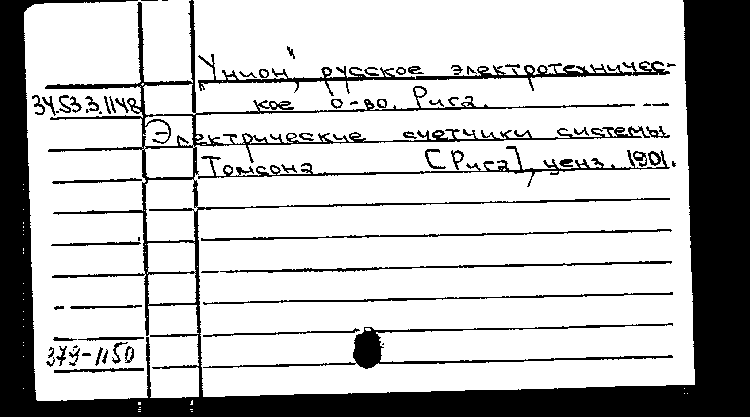 "Унион", русское электротехничес-
34.53.3.1148 кое о-во. Рига.
Электрические счетчики системы
Томсона [Рига], ценз. 1901.
379-1150